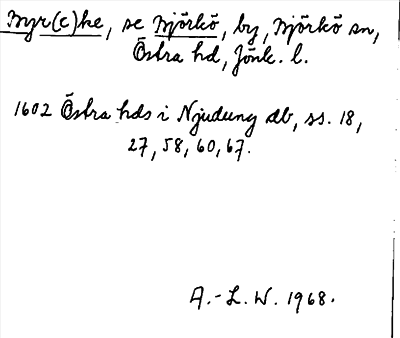 Byr(c)ke, se Björkö, by, Björkö sn,
Östra hd, Jönk. l.
1602 Östra hds i Njudung db, ss. 18,
27, 58, 60, 67.
A.-L. W. 1968.